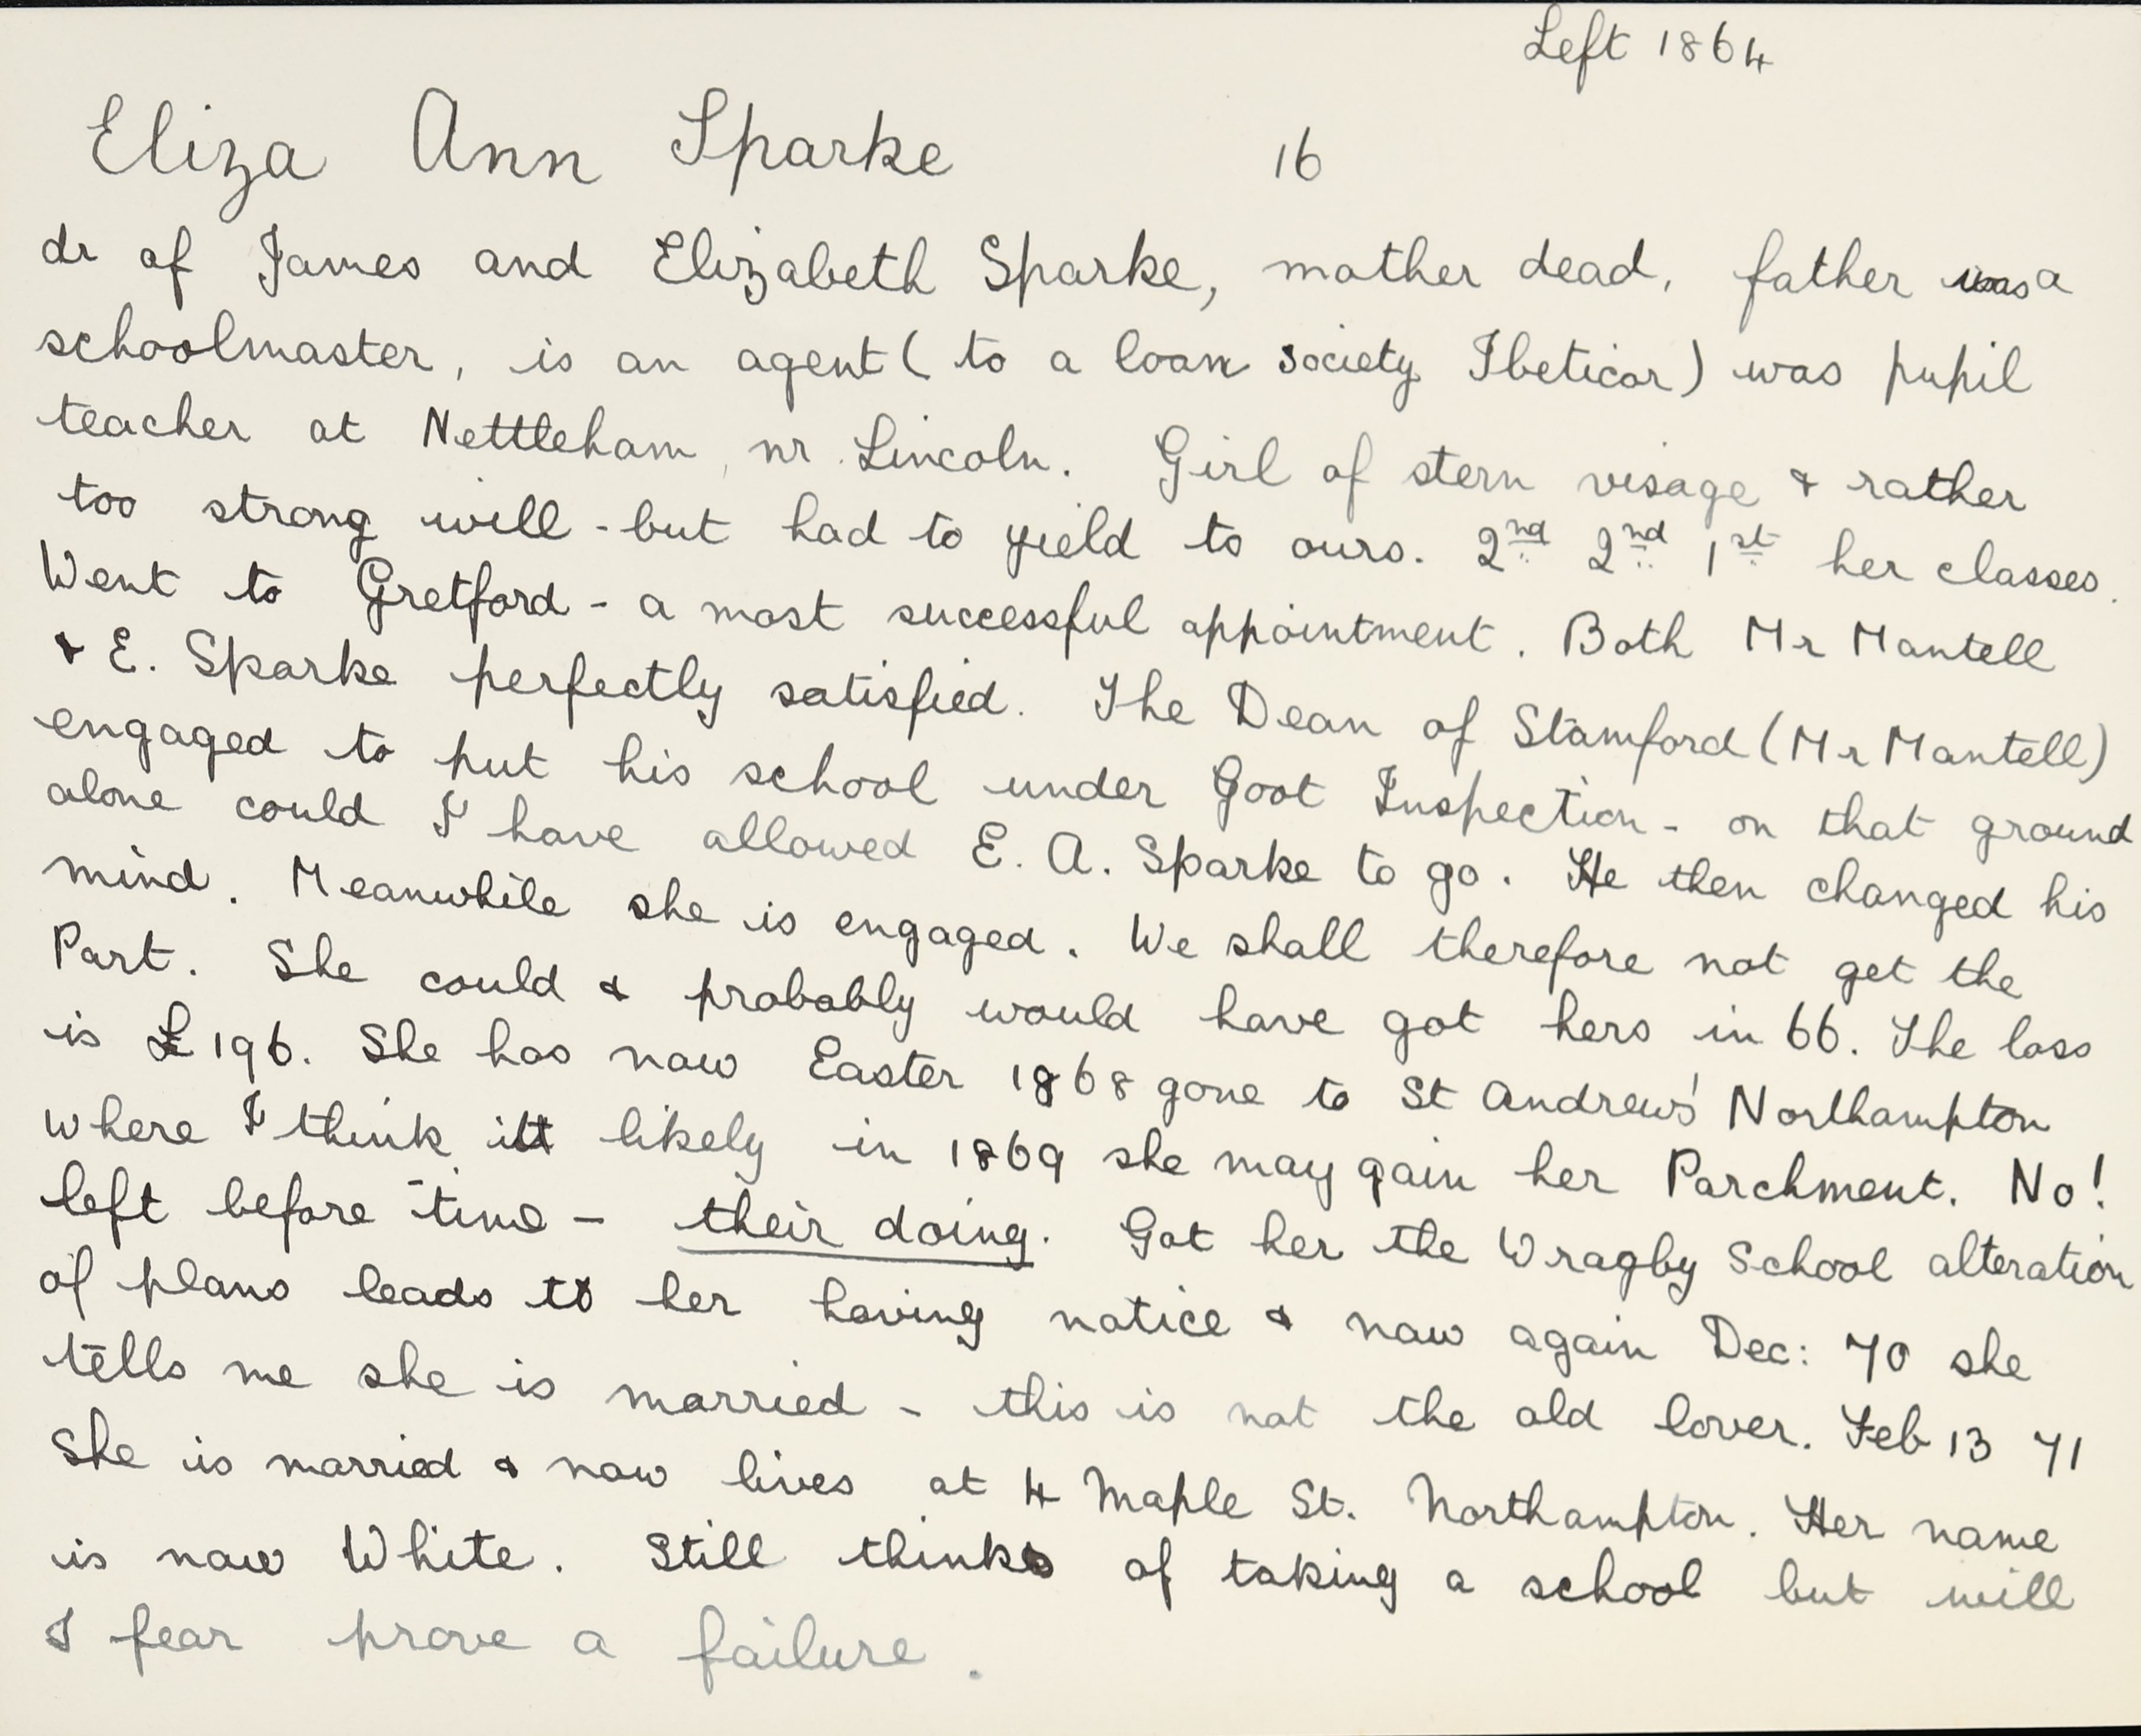 Left 1864
Eliza Ann Sparke 16
dr of James and Elizabeth Sparke, mother dead, father was a
schoolmaster, is an agent ( to a loan society Ibeticar) was pupil
teacher at Nettleham, nr Lincoln. Girl of stern visage & rather
too strong will - but had to yield to ours. 2nd 2nd 1st her classes.
Went to Gretford - a most successful appointment. Both Mr Mantell
& E. Sparke perfectly satisfied. The Dean of Stamford (Mr Mantell)
engaged to put his school under Goot Inspection - on that ground
alone could I have allowed E. A. Sparke to go. He then changed his
mind. Meanwhile she is engaged. We shall therefore not get the
Part. She could & probably would have got hers in 66. The loss
is £196. She has now Easter 1868 gone to St Andrews' Northampton
where I think it likely in 1869 she may gain her Parchment. No!
left before time - their doing. Got her the Wragby School alteration
of plans leads to her having notice & now again Dec: 70 she
tells me she is married - this is not the old lover. Feb 13 71
She is married & now lives at 4 Maple St. Northampton. Her name
is now White. Still thinks of taking a school but will
I fear prove a failure.